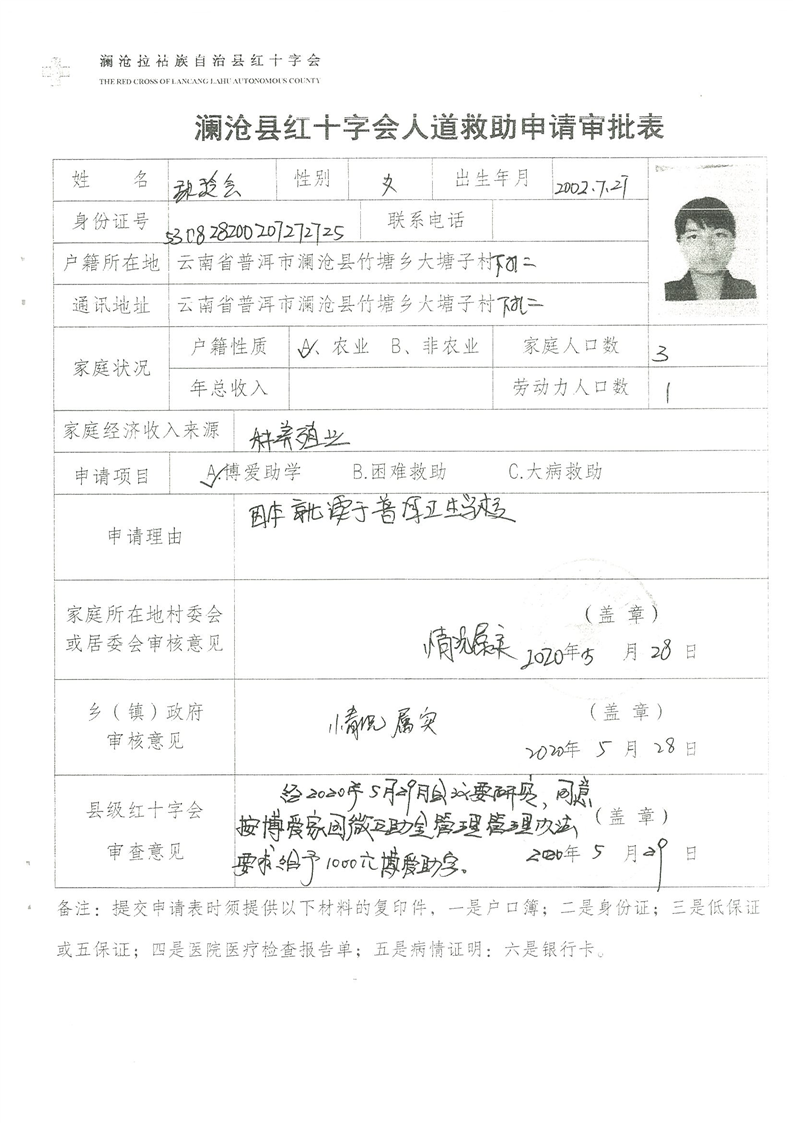 澜沧拉祜族自治县红十字会
THE RED CROSS OF LANCANG LAHU AUTONOMOUS COUNTY
澜沧县红十字会人道救助申请审批表
姓 名 性别 女 出生年月 2002.7.27
身份证号 530828200207272725 联系电话
户籍所在地 云南省普洱市澜沧县竹塘乡大塘子村
通讯地址 云南省普洱市澜沧县竹塘乡大塘子村
家庭状况 户籍性质 A、农业 B、非农业 家庭人口数 3
年总收入 劳动力人口数 1
家庭经济收入来源 养殖业
申请项目 A.博爱助学 B.困难救助 C.大病救助
申请理由 就读于普洱卫生学校
家庭所在地村委会
或居委会审核意见
(盖 章)
情况属实 2020年5月28日
乡（镇）政府
审核意见
情况属实
(盖 章)
2020年5月28日
县级红十字会
审查意见
经2020年5月29日会议研究，同意
按博爱家园 互助金管理管理办法
要求给予1000元博爱助学。
(盖 章)
2020年5月29日
备注：提交申请表时须提供以下材料的复印件，一是户口簿；二是身份证；三是低保证
或五保证；四是医院医疗检查报告单；五是病情证明：六是银行卡。